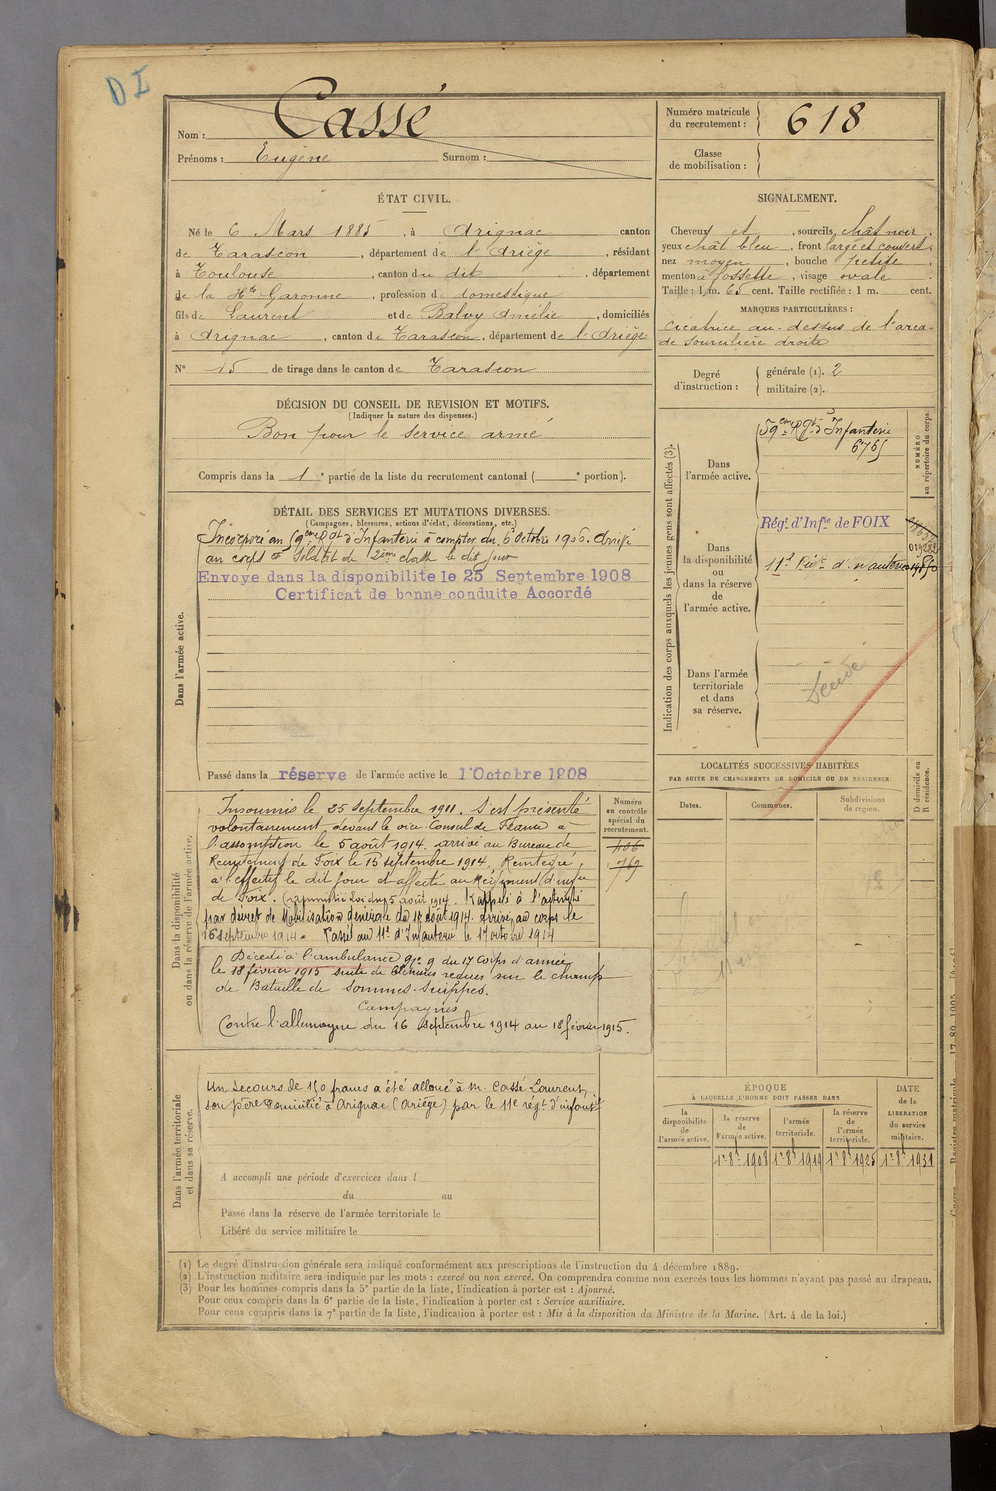 D I
Nom : Cassé
Prénoms : Eugène Surnom :
Numéro matricule
du recrutement : 618
Classe
de mobilisation :
ÉTAT CIVIL.
Né le 6 Mars 1885, à Arignac canton
de Tarascon, département de l'Ariège, résidant
à Toulouse, canton du dit, département
de la Hte Garonne, profession de domestique
fils de Laurent et de Balvy Amélie, domiciliés
à Arignac, canton de Tarascon, département de l'Ariège
N° 15 de tirage dans le canton de Tarascon
SIGNALEMENT.
Cheveux et, sourcils chât noir,
yeux chât bleu, front large et couvert,
nez moyen, bouche petite,
menton à fossette, visage ovale.
Taille : 1 m. 65 cent. Taille rectifiée : 1 m. cent.
MARQUES PARTICULIÈRES :
Cicatrice au-dessus de l'arca-
de sourcilière droite
Degré
d'instruction :
générale (1). 2
militaire (2).
DÉCISION DU CONSEIL DE REVISION ET MOTIFS.
(Indiquer la nature des dispenses.)
Bon pour le service armé
Compris dans la 1e partie de la liste du recrutement cantonal ( e portion).
DÉTAIL DES SERVICES ET MUTATIONS DIVERSES.
(Campagnes, blessures, actions d'éclat, décorations, etc.)
Dans l'armée active.
Incorporé au 59eme Rgt d'Infanterie à compter du 6 Octobre 1906. Arrivé
au corps & Soldat de 2ème classe le dit jour
Envoye dans la disponibilite le 25 Septembre 1908
Certificat de bonne conduite Accordé
Passé dans la réserve de l'armée active le 1'Octobre 1908
Indication des corps auxquels les jeunes gens sont affectés (3).
NUMÉRO
au répertoire du corps.
Dans
l'armée active.
59eme Rgt d'Infanterie
6765
Dans
la disponibilité
ou
dans la réserve
de
l'armée active.
Régt d'Infie de FOIX
11e d'infanterie
Dans l'armée
territoriale
et dans
sa réserve.
Décédé
LOCALITÉS SUCCESSIVES HABITÉES
PAR SUITE DE CHANGEMENTS DE DOMICILE OU DE RÉSIDENCE.
Dates.
Communes.
Subdivisions
de région.
D domicile ou
R résidence.
Dans la disponibilité
ou dans la réserve de l'armée active.
Numéro
au contrôle
spécial du
recrutement.
406
769
Insoumis le 25 septembre 1911. S'est présenté
volontairement devant le vice-Consul de France à
l'assomption le 5 août 1914. arrivé au Bureau de
Recrutement de Foix le 15 septembre 1914. Réintégré
à l'effectif le dit jour et affecté au Régiment d'infie
de Foix. (Amnistié Loi du 5 août 1914. Rappelé à l'activité
par décret de Mobilisation générale du 1er août 1914. Arrivé au corps le
16 septembre 1914. Passé au 11e d'Infanterie le 17 octobre 1914
Décédé à l'ambulance n° 9 du 17 corps d'armée
le 18 février 1915 suite de blessures reçues sur le champ
de Bataille de Sommes-Suippes.
Campagnes
Contre l'allemagne du 16 septembre 1914 au 18 février 1915.
Dans l'armée territoriale
et dans sa réserve.
Un secours de 150 francs a été alloué à m. Cassé Laurent,
son père domicilié à Arignac (Ariège) par le 11e régt d'infanterie
A accompli une période d'exercices dans l
du au
Passé dans la réserve de l'armée territoriale le
Libéré du service militaire le
ÉPOQUE
À LAQUELLE L'HOMME DOIT PASSER DANS
la
disponibilité
de
l'armée active.
la réserve
de
l'armée active.
l'armée
territoriale.
la réserve
de
l'armée
territoriale.
DATE
de la
LIBÉRATION
du service
militaire.
1er 8bre 1908 1er 8bre 1919 1er 8bre 1925 1er 8bre 1931
(1) Le degré d'instruction générale sera indiqué conformément aux prescriptions de l'instruction du 4 décembre 1889.
(2) L'instruction militaire sera indiquée par les mots : exercé ou non exercé. On comprendra comme non exercés tous les hommes n'ayant pas passé au drapeau.
(3) Pour les hommes compris dans la 5e partie de la liste, l'indication à porter est : Ajourné.
Pour ceux compris dans la 6e partie de la liste, l'indication à porter est : Service auxiliaire.
Pour ceux compris dans la 7e partie de la liste, l'indication à porter est : Mis à la disposition du Ministre de la Marine. (Art. 4 de la loi.)